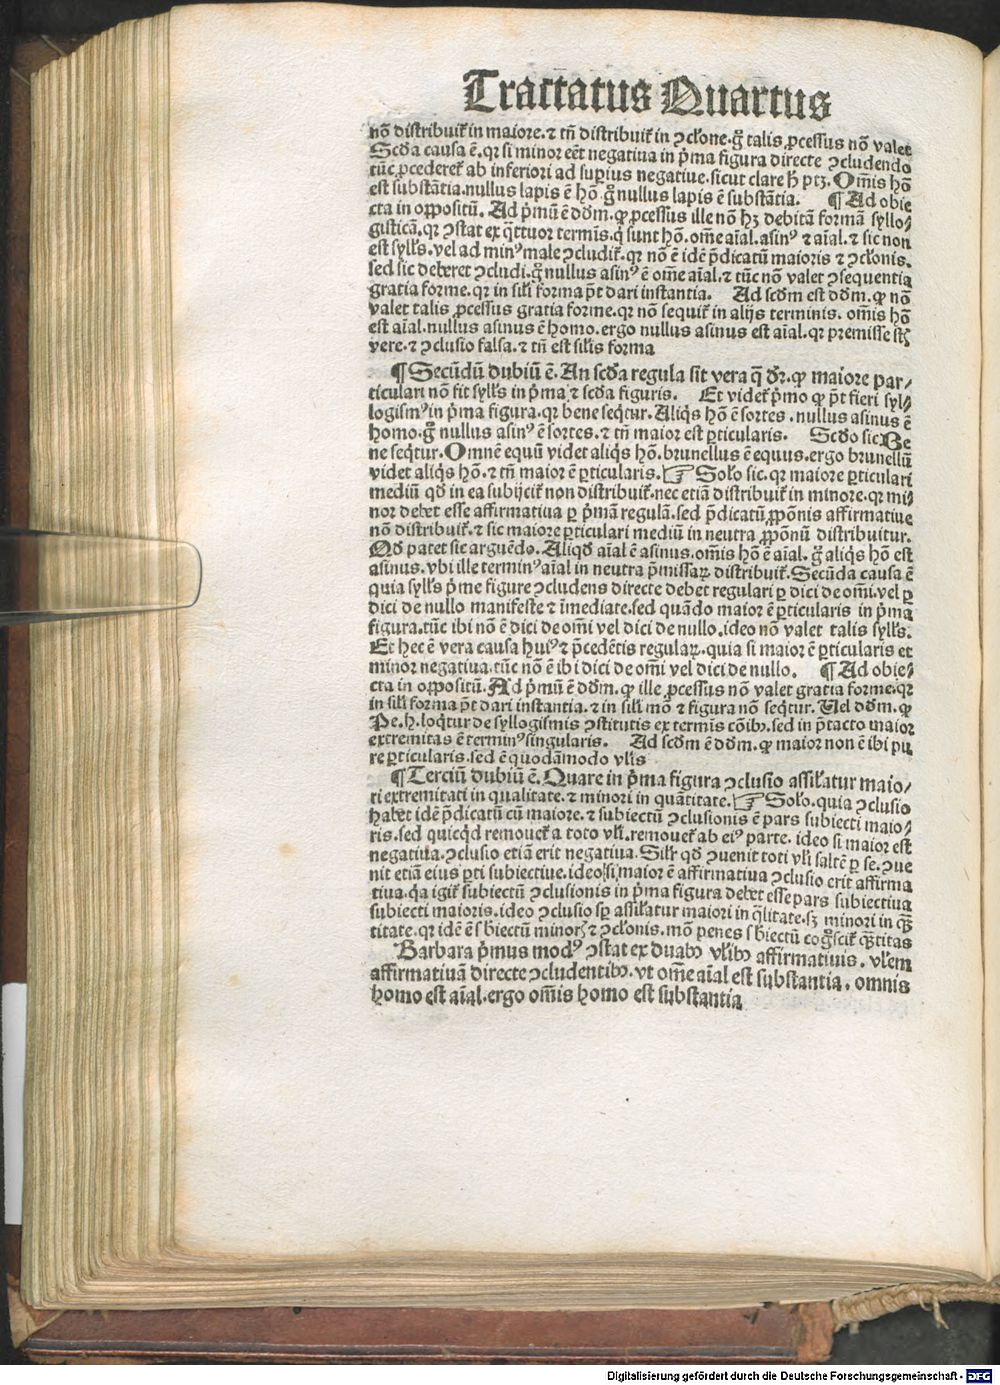 Tractatus Quartus
nō distribuit̄ in maiore.⁊ tn̄ distribuit̄ in ꝯcl̄one.g̊ talis ꝓcessus nō valet
Scd̄a causa ē.qr si minor eēt negatiua in p̄ma figura directe ꝯcludendo
tūc ꝓcederet̄ ab inferiori ad suꝑius negatiue.sicut clare h̄ ptꝫ. Om̄is hō
est substātia.nullus lapis ē hō. g̊ nullus lapis ē substātia. ¶ Ad obie
cta in oppositū. Ad p̄mū ē dd̄m. ꝙ ꝓcessus ille nō hꝫ debitā formā syllo⸗
gisticā.qr ꝯstat ex q̄ttuor termīs.q̇ sunt hō. om̄e aīal. asinꝰ ⁊ aīal. ⁊ sic non
est syll̄s. vel ad minꝰ male ꝯcludit̄. qr nō ē idē p̄dicatū maioris ⁊ ꝯcl̄onis.
sed sic deberet ꝯcludi. g̊ nullus asinꝰ ē om̄e aīal. ⁊ tūc nō valet ꝯsequentia
gratia forme. qr in sil̄i forma p̄t dari instantia. Ad scd̄m est dd̄m. ꝙ nō
valet talis ꝓcessus gratia forme. qr nō sequit̄ in alijs terminis. om̄is hō
est aīal. nullus asinus ē homo. ergo nullus asinus est aīal. qr premisse st̄
vere. ⁊ ꝯclusio falsa. ⁊ tn̄ est sil̄is forma
¶ Secūdū dubiū ē. An scd̄a regula sit vera q̄ dr̄. ꝙ maiore par⸗
ticulari nō fit syll̄s in p̄ma ⁊ scd̄a figuris. Et videt̄ p̄mo ꝙ p̄t fieri syl⸗
logismꝰ in p̄ma figura. qr bene seq̇tur. Aliq̇s hō ē sortes. nullus asinus ē
homo. g̊ nullus asinꝰ ē sortes. ⁊ tn̄ maior est ꝑticularis. Scd̄o sic. Be
ne seq̇tur. Omnē equū videt aliq̇s hō. brunellus ē equus. ergo brunellū
videt aliq̇s hō. ⁊ tn̄ maior ē ꝑticularis. ☞ Sol̄o sic. qr maiore ꝑticulari
mediū qd̄ in ea subijcit̄ non distribuit̄. nec etiā distribuit̄ in minore. qr mi⸗
nor debet esse affirmatiua ꝑ p̄mā regulā. sed p̄dicatū ꝓpōnis affirmatiue
nō distribuit̄. ⁊ sic maiore ꝑticulari mediū in neutra ꝓpōnū distribuitur.
Qd̄ patet sic arguēdo. Aliqd̄ aīal ē asinus. om̄is hō ē aīal. g̊ aliq̇s hō est
asinus. vbi ille terminꝰ aīal in neutra p̄missaꝝ distribuit̄. Secūda causa ē
quia syll̄s p̄me figure ꝯcludens directe debet regulari ꝑ dici de om̄i. vel ꝑ
dici de nullo manifeste ⁊ īmediate. sed quādo maior ē ꝑticularis in p̄ma
figura. tūc ibi nō ē dici de om̄i vel dici de nullo. ideo nō valet talis syll̄s.
Et hec ē vera causa huiꝰ ⁊ p̄cedētis regulaꝝ. quia si maior ē ꝑticularis et
minor negatiua. tūc nō ē ibi dici de om̄i vel dici de nullo. ¶ Ad obie⸗
cta in oppositū. Ad p̄mū ē dd̄m. ꝙ ille ꝓcessus nō valet gratia forme. qr
in sil̄i forma p̄t dari instantia. ⁊ in sil̄i mō ⁊ figura nō seq̇tur. Uel dd̄m. ꝙ
Pe. h̄. loq̇tur de syllogismis ꝯstitutis ex termīs cōibꝫ. sed in p̄tacto maior
extremitas ē terminꝰ singularis. Ad scd̄m ē dd̄m. ꝙ maior non ē ibi pu
re ꝑticularis. sed ē quodāmodo vl̄is
¶ Terciū dubiū ē. Quare in p̄ma figura ꝯclusio assil̄atur maio⸗
ri extremitati in qualitate. ⁊ minori in quātitate. ☞ Sol̄o. quia ꝯclusio
habet idē p̄dicatū cū maiore. ⁊ subiectū ꝯclusionis ē pars subiecti maio⸗
ris. sed quicq̇d remouet̄ a toto vl̄i. remouet̄ ab eiꝰ parte. ideo si maior est
negatiua. ꝯclusio etiā erit negatiua. Sil̄r qd̄ ꝯuenit toti vl̄i saltē ꝑ se. ꝯue
nit etiā eius ꝑti subiectiue. ideo si maior ē affirmatiua ꝯclusio erit affirma
tiua. q̇a igit̄ subiectū ꝯclusionis in p̄ma figura debet esse pars subiectiua
subiecti maioris. ideo ꝯclusio sꝑ assil̄atur maiori in q̄litate. sꝫ minori in q̄ꝫ
titate. qr idē ē sb̄iectū minoris ⁊ ꝯcl̄onis. mō penes sb̄iectū cog̊scit̄ q̄titas
Barbara p̄mus modꝰ ꝯstat ex duabꝫ vl̄ibꝫ affirmatiuis. vl̄em
affirmatiuā directe ꝯcludentibꝫ. vt om̄e aīal est substantia. omnis
homo est aīal. ergo om̄is homo est substantia
Digitalisierung gefördert durch die Deutsche Forschungsgemeinschaft - DFG